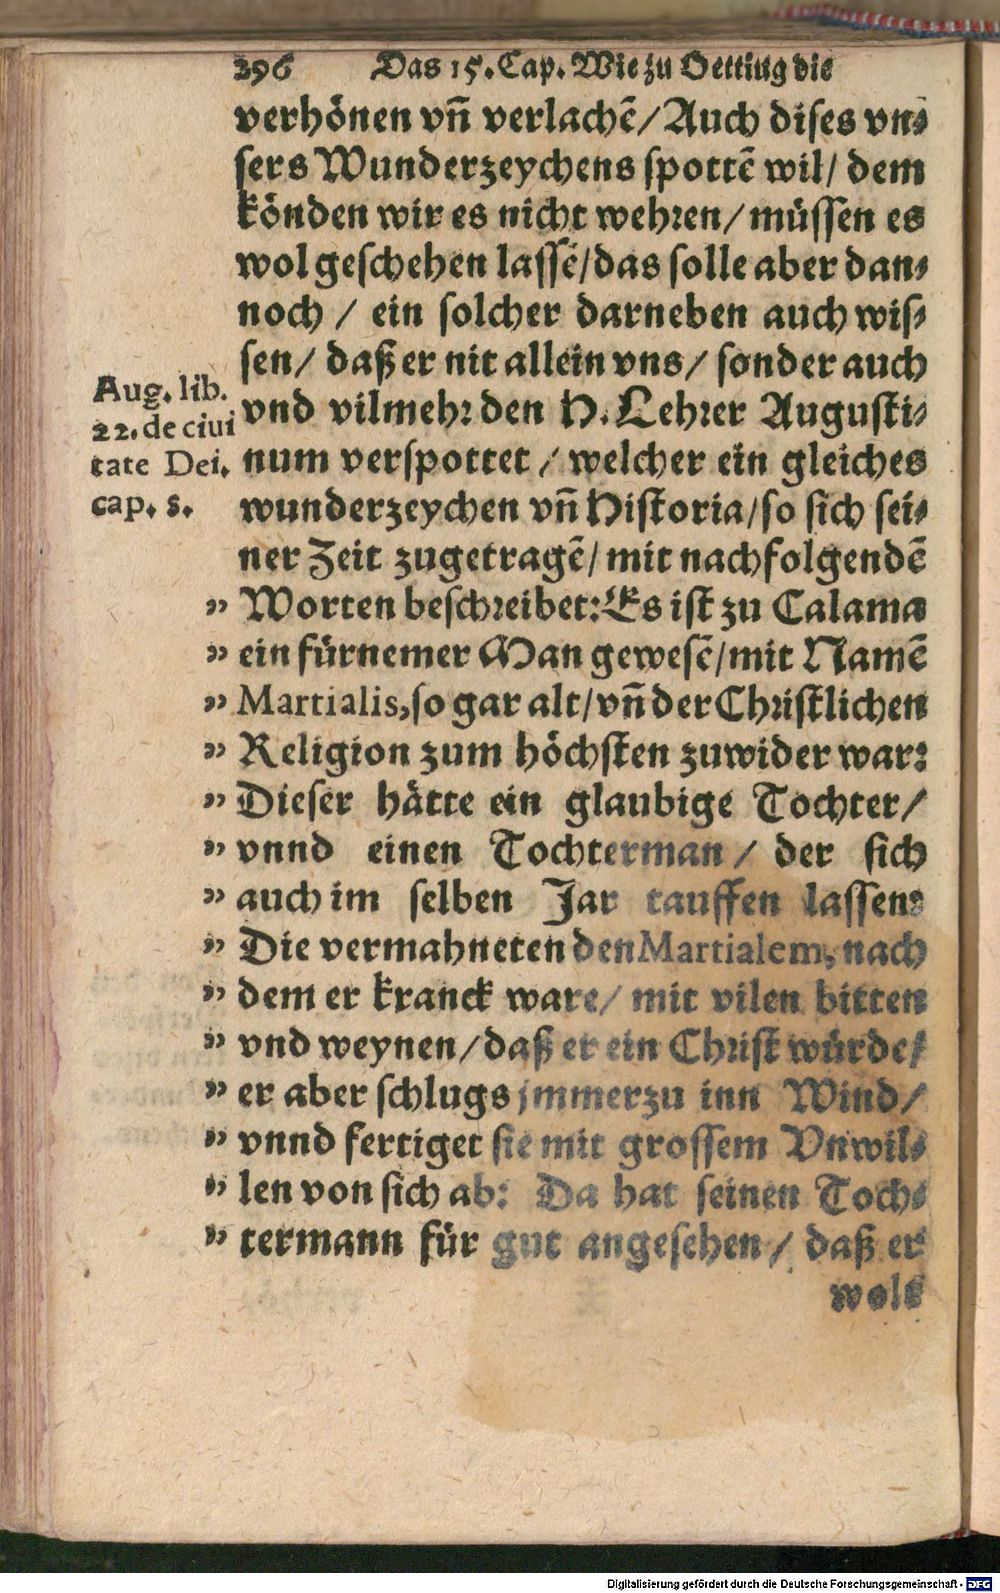 296 Das 15. Cap. Wie zu Oetting die
verhönen vñ verlachẽ/ Auch dises vn⸗
sers Wunderzeychens spottẽ wil/ dem
könden wir es nicht wehren/ müssen es
wol geschehen lassẽ/ das solle aber dan⸗
noch / ein solcher darneben auch wis⸗
sen/ daß er nit allein vns/ sonder auch
vnd vilmehr den H. Lehrer Augusti⸗
num verspottet / welcher ein gleiches
wunderzeychen vñ Historia/ so sich sei⸗
ner Zeit zugetragẽ/ mit nachfolgendẽ
Aug. lib.
22. de ciui
tate Dei.
cap. 8.
" Worten beschreibet: Es ist zu Calama
" ein fürnemer Man gewesẽ/ mit Namẽ
" Martialis, so gar alt/ vñ der Christlichen
" Religion zum höchsten zuwider war:
" Dieser hätte ein glaubige Tochter/
" vnnd einen Tochterman / der sich
" auch im selben Jar tauffen lassen:
" Die vermahneten den Martialem, nach
" dem er kranck ware/ mit vilen bitten
" vnd weynen/ daß er ein Christ würde/
" er aber schlugs jmmerzu inn Wind/
" vnnd fertiget sie mit grossem Vnwil⸗
" len von sich ab: Da hat seinen Toch⸗
" termann für gut angesehen / daß er
wolt
Digitalisierung gefördert durch die Deutsche Forschungsgemeinschaft - DFG